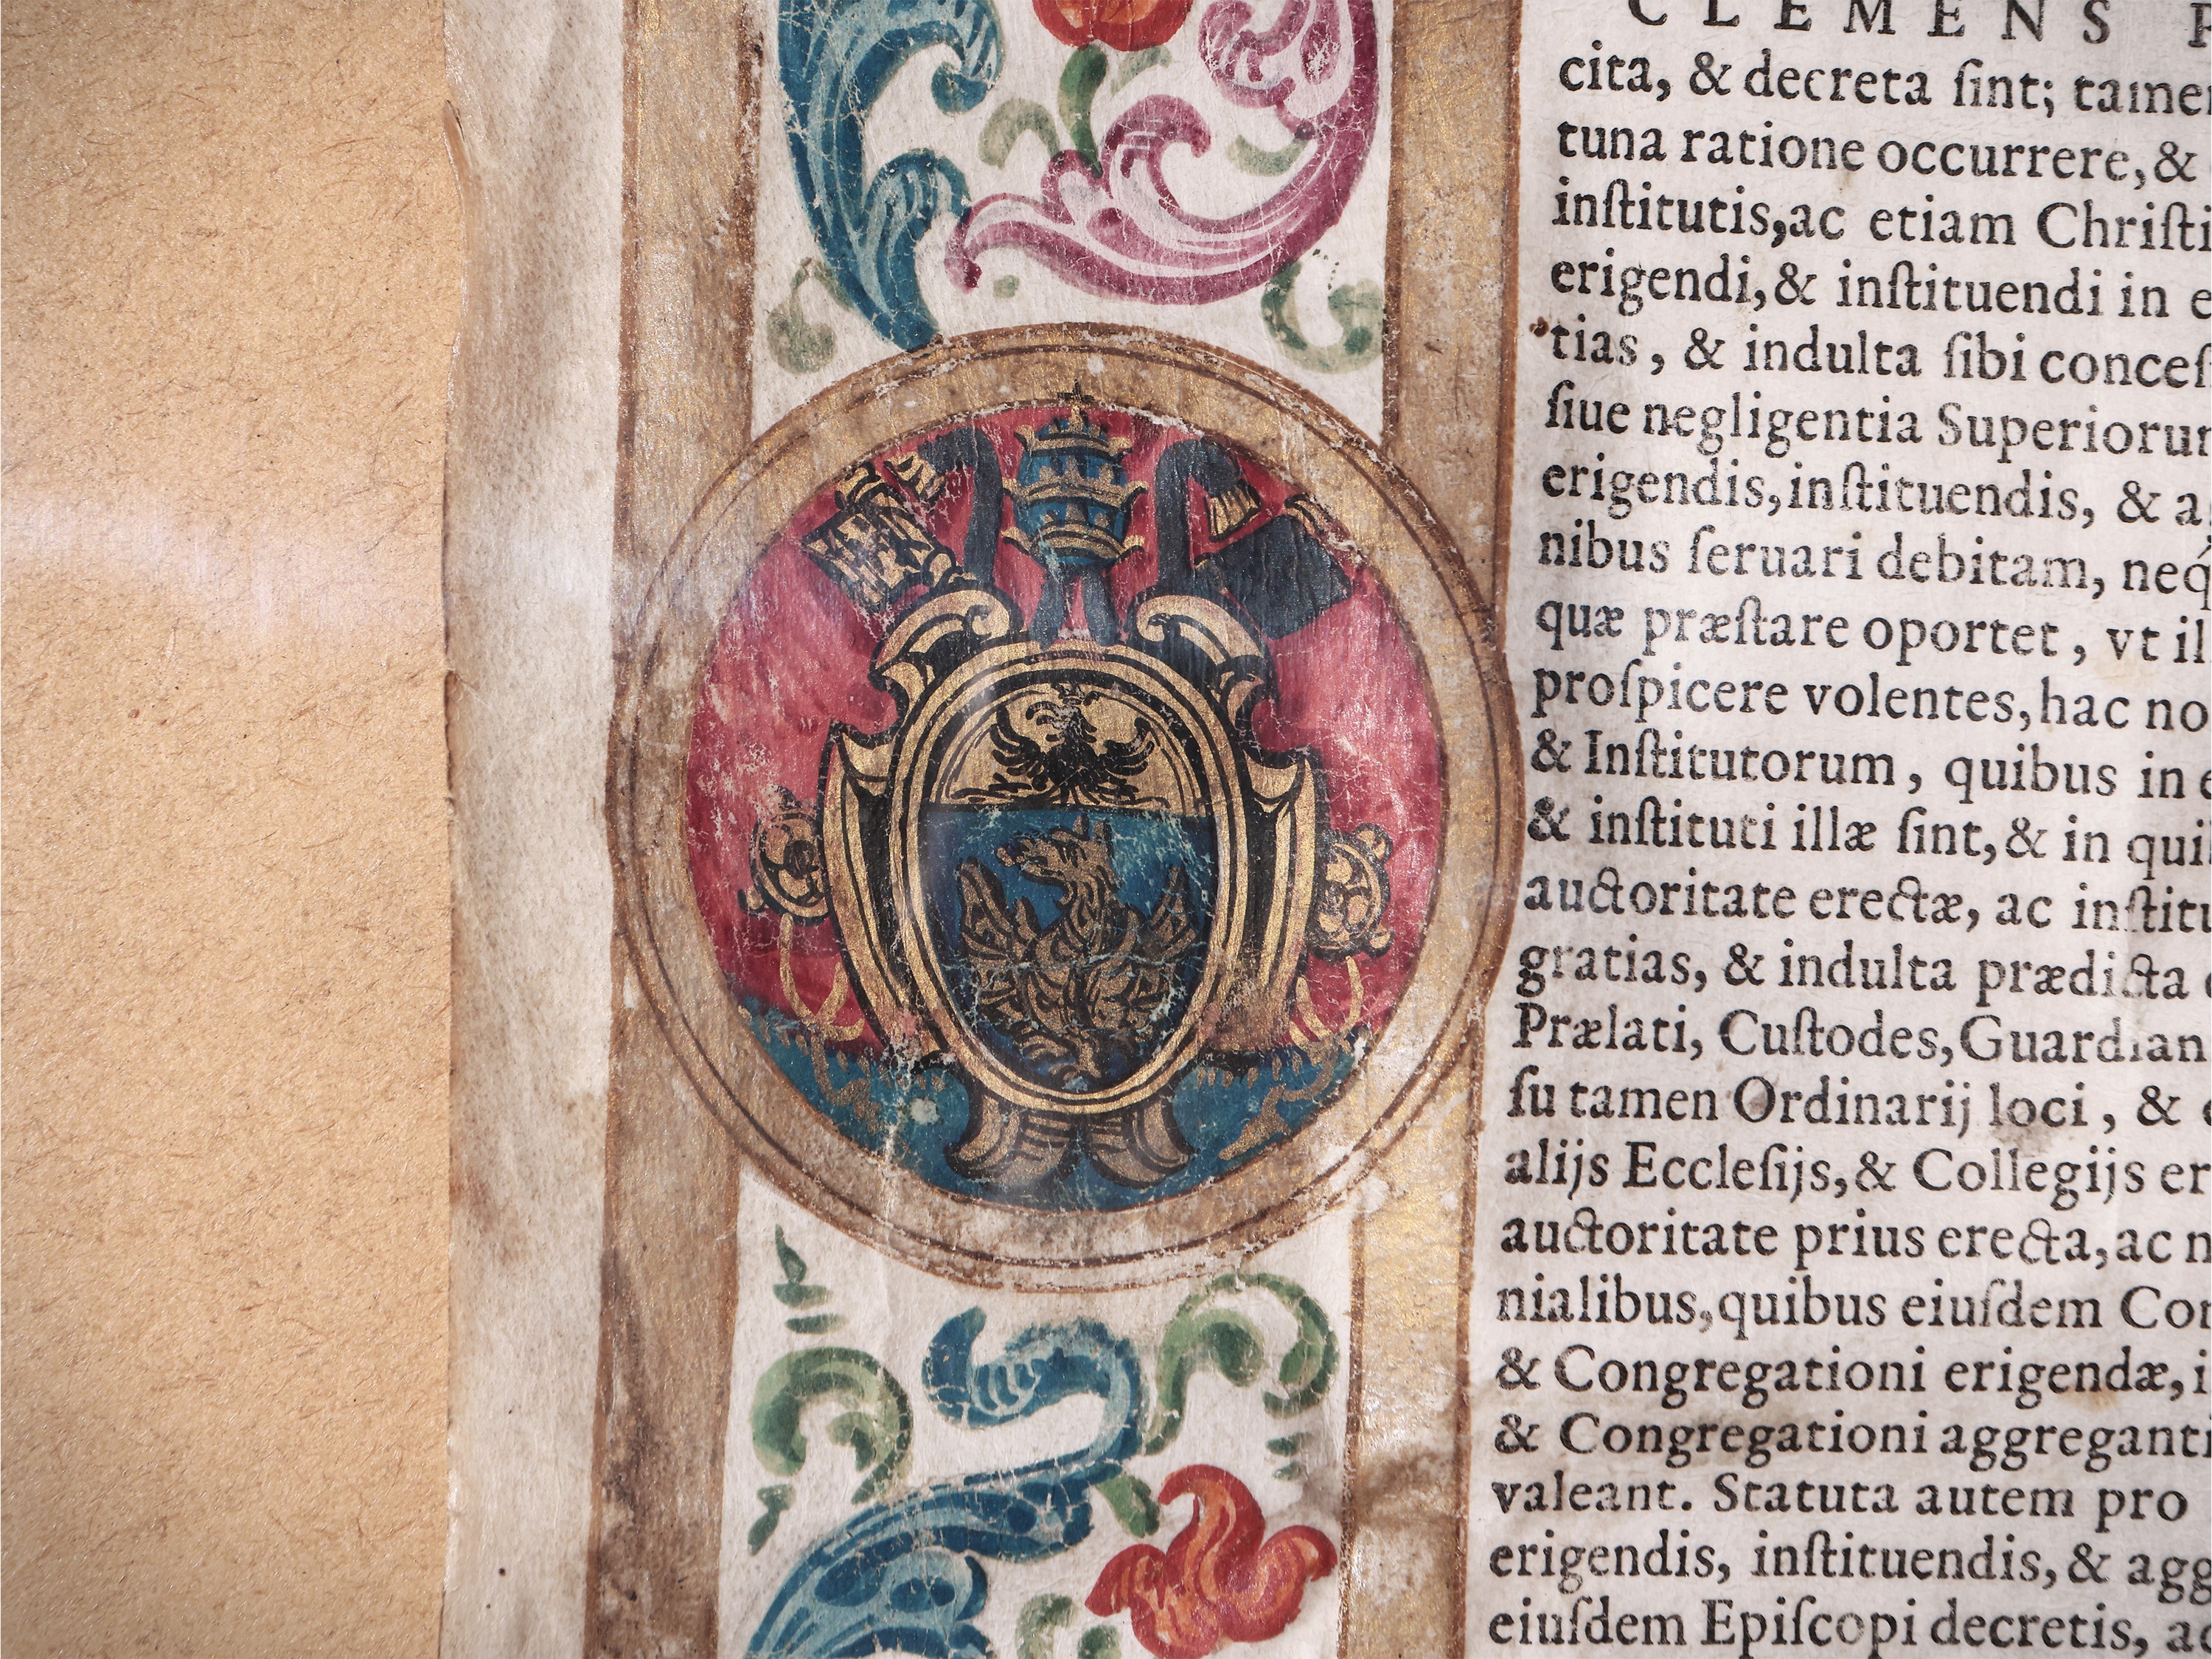 CLEMENS
cita, & decreta ſint; tamen
tuna ratione occurrere, &
inſtitutis, ac etiam Chriſti
erigendi, & inſtituendi in e
tias, & indulta ſibi conceſ
ſiue negligentia Superiorum
erigendis, inſtituendis, & a
nibus ſeruari debitam, neq́
quæ præſtare oportet, vt il
proſpicere volentes, hac no
& Inſtitutorum, quibus in e
& inſtituti illæ ſint, & in qui
auctoritate erectæ, ac inſtitu
gratias, & indulta prædicta
Prælati, Cuſtodes, Guardian
ſu tamen Ordinarij loci, &
alijs Eccleſijs, & Collegijs er
auctoritate prius erecta, ac n
nialibus, quibus eiuſdem Con
& Congregationi erigendæ, i
& Congregationi aggreganti
valeant. Statuta autem pro
erigendis, inſtituendis, & agg
eiuſdem Epiſcopi decretis, ac